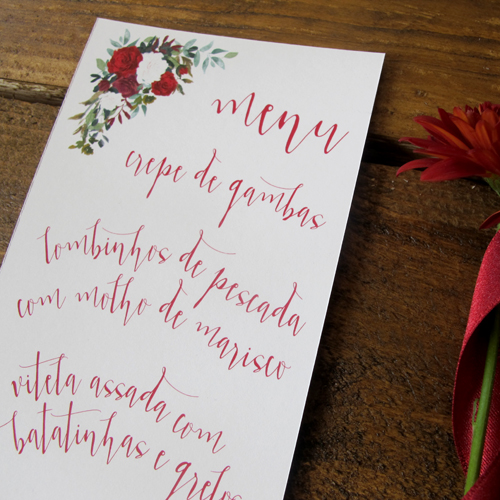 menu
crepe de gambas
lombinhos de pescada
com molho de marisco
vitela assada com
batatinhas e grelos